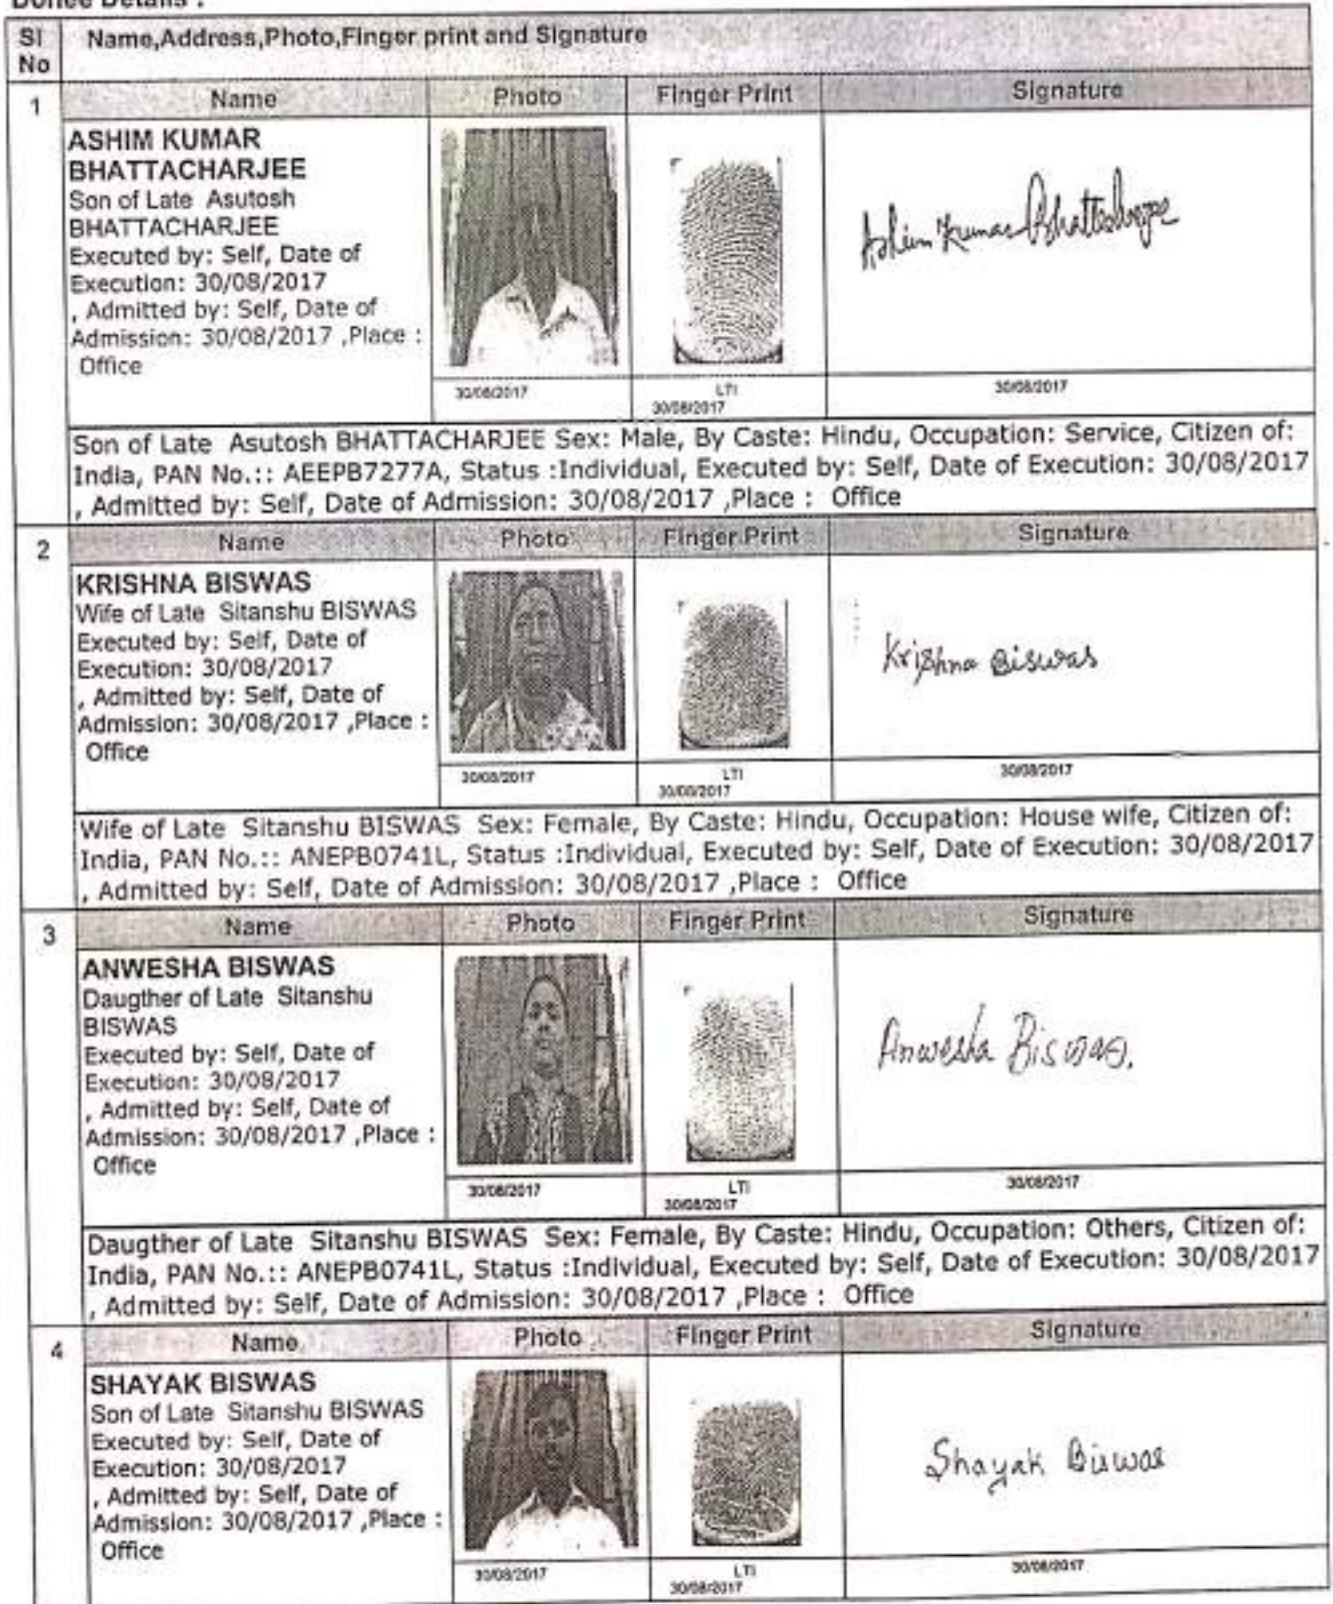 Donee Details :
Sl No
Name,Address,Photo,Finger print and Signature
1
Name Photo Finger Print Signature
ASHIM KUMAR
BHATTACHARJEE
Son of Late Asutosh
BHATTACHARJEE
Executed by: Self, Date of
Execution: 30/08/2017
, Admitted by: Self, Date of
Admission: 30/08/2017 ,Place :
Office
Ashim Kumar Bhattacharjee
30/08/2017
LTI
30/08/2017
30/08/2017
Son of Late Asutosh BHATTACHARJEE Sex: Male, By Caste: Hindu, Occupation: Service, Citizen of:
India, PAN No.:: AEEPB7277A, Status :Individual, Executed by: Self, Date of Execution: 30/08/2017
, Admitted by: Self, Date of Admission: 30/08/2017 ,Place : Office
2
Name Photo Finger Print Signature
KRISHNA BISWAS
Wife of Late Sitanshu BISWAS
Executed by: Self, Date of
Execution: 30/08/2017
, Admitted by: Self, Date of
Admission: 30/08/2017 ,Place :
Office
Krishna Biswas
30/08/2017
LTI
30/08/2017
30/08/2017
Wife of Late Sitanshu BISWAS Sex: Female, By Caste: Hindu, Occupation: House wife, Citizen of:
India, PAN No.:: ANEPB0741L, Status :Individual, Executed by: Self, Date of Execution: 30/08/2017
, Admitted by: Self, Date of Admission: 30/08/2017 ,Place : Office
3
Name Photo Finger Print Signature
ANWESHA BISWAS
Daugther of Late Sitanshu
BISWAS
Executed by: Self, Date of
Execution: 30/08/2017
, Admitted by: Self, Date of
Admission: 30/08/2017 ,Place :
Office
Anwesha Biswas.
30/08/2017
LTI
30/08/2017
30/08/2017
Daugther of Late Sitanshu BISWAS Sex: Female, By Caste: Hindu, Occupation: Others, Citizen of:
India, PAN No.:: ANEPB0741L, Status :Individual, Executed by: Self, Date of Execution: 30/08/2017
, Admitted by: Self, Date of Admission: 30/08/2017 ,Place : Office
4
Name Photo Finger Print Signature
SHAYAK BISWAS
Son of Late Sitanshu BISWAS
Executed by: Self, Date of
Execution: 30/08/2017
, Admitted by: Self, Date of
Admission: 30/08/2017 ,Place :
Office
Shayak Biswas
30/08/2017
LTI
30/08/2017
30/08/2017